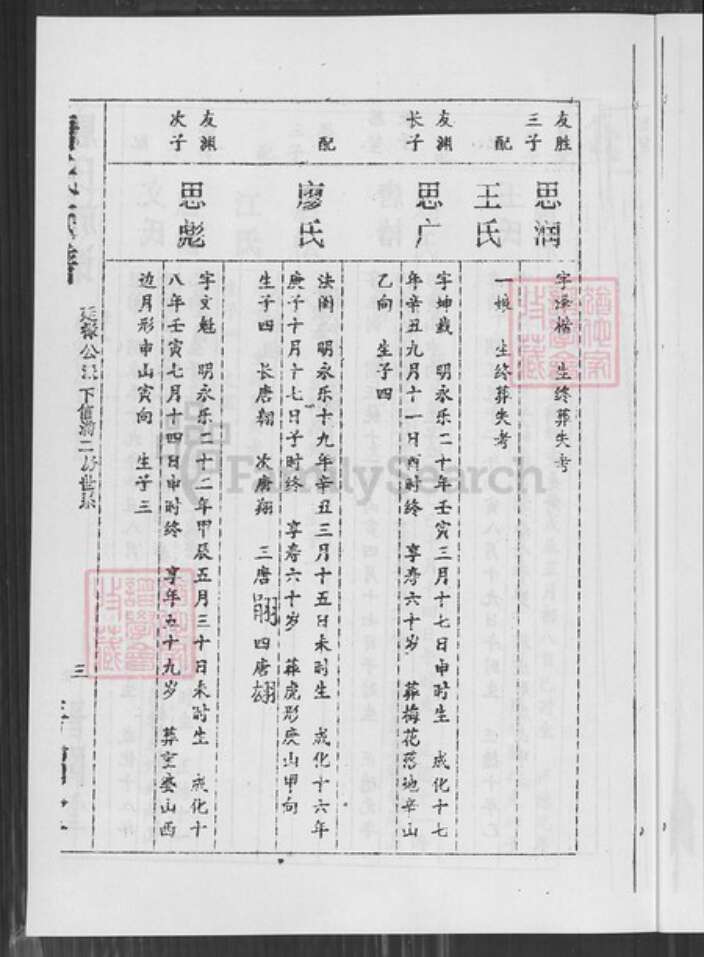 友胜
三子
思润
字泽楷 生终葬失考
配
王氏
一娘 生终葬失考
友渊
长子
思广
字坤载 明永乐二十年壬寅三月十七日申时生 成化十七
年辛丑九月十一日酉时终 享寿六十岁 葬梅花落地辛山
乙向 生子四
配
廖氏
法阁 明永乐十九年辛丑三月十五日未时生 成化十六年
庚子十月十七日子时终 享寿六十岁 葬虎形庚山甲向
生子四 长唐翱 次唐翔 三唐翮 四唐翃
友渊
次子
思彪
字文魁 明永乐二十二年甲辰五月三十日未时生 成化十
八年壬寅七月十四日申时终 享年五十九岁 葬室婆山西
边月形申山寅向 生子三
三
FamilySearch